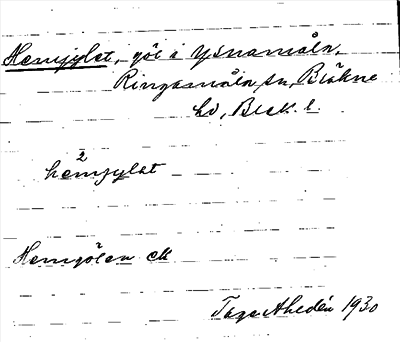 Hemjylet, göl i Ysnamåla,
Ringamåla sn, Bräkne
hd, Blek. l.
2
hemjylet
Hemgölen ek
Tage Ahedén 1930